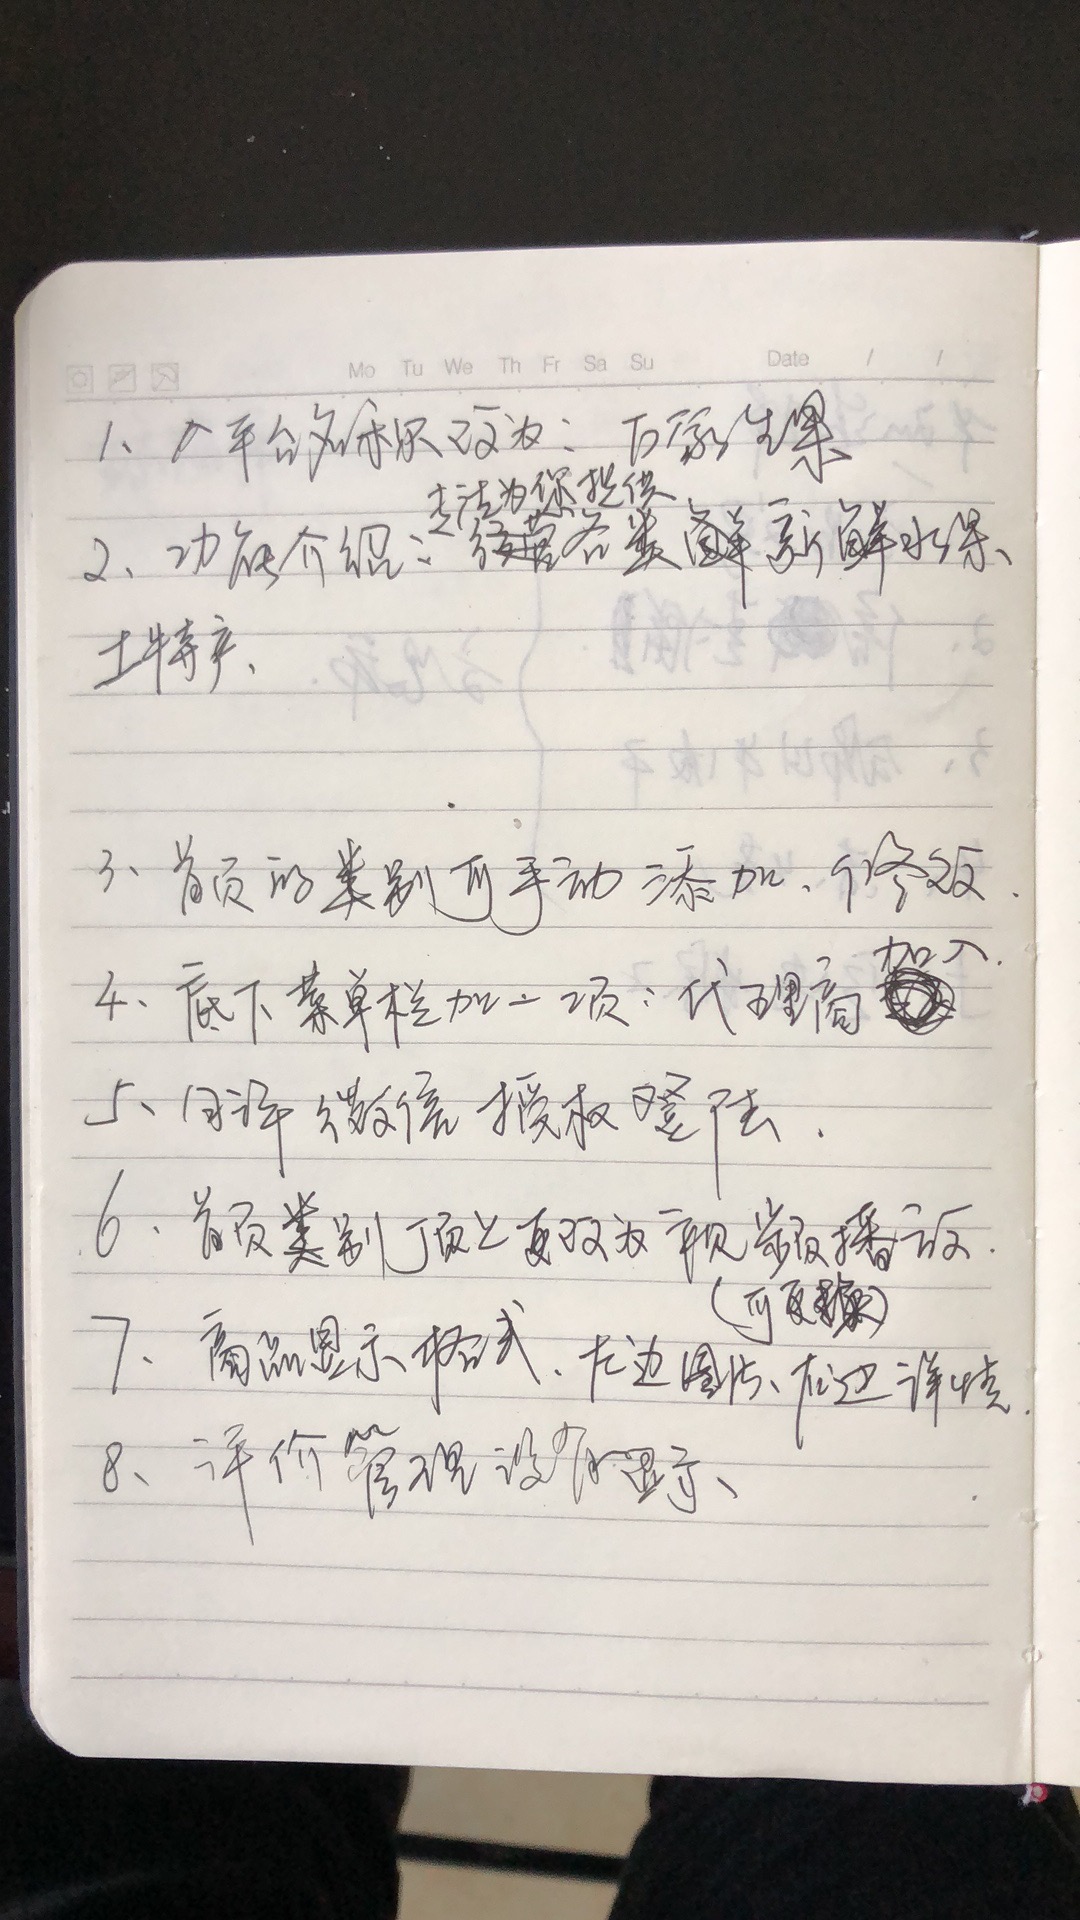 Mo Tu We Th Fr Sa Su Date / /
1、平台名称只改为：万家生果
专注为你提供
2、功能介绍：经营各类新鲜水果、
土特产、
3、首页的类别可手动添加、修改.
加入.
4、底下菜单栏加一项：代理商
5、允许微信授权登陆.
6、首页类别顶上页改为视频播放.
(可更换)
7、商品显示格式、左边图片、右边详情.
8、评价管理没有显示、